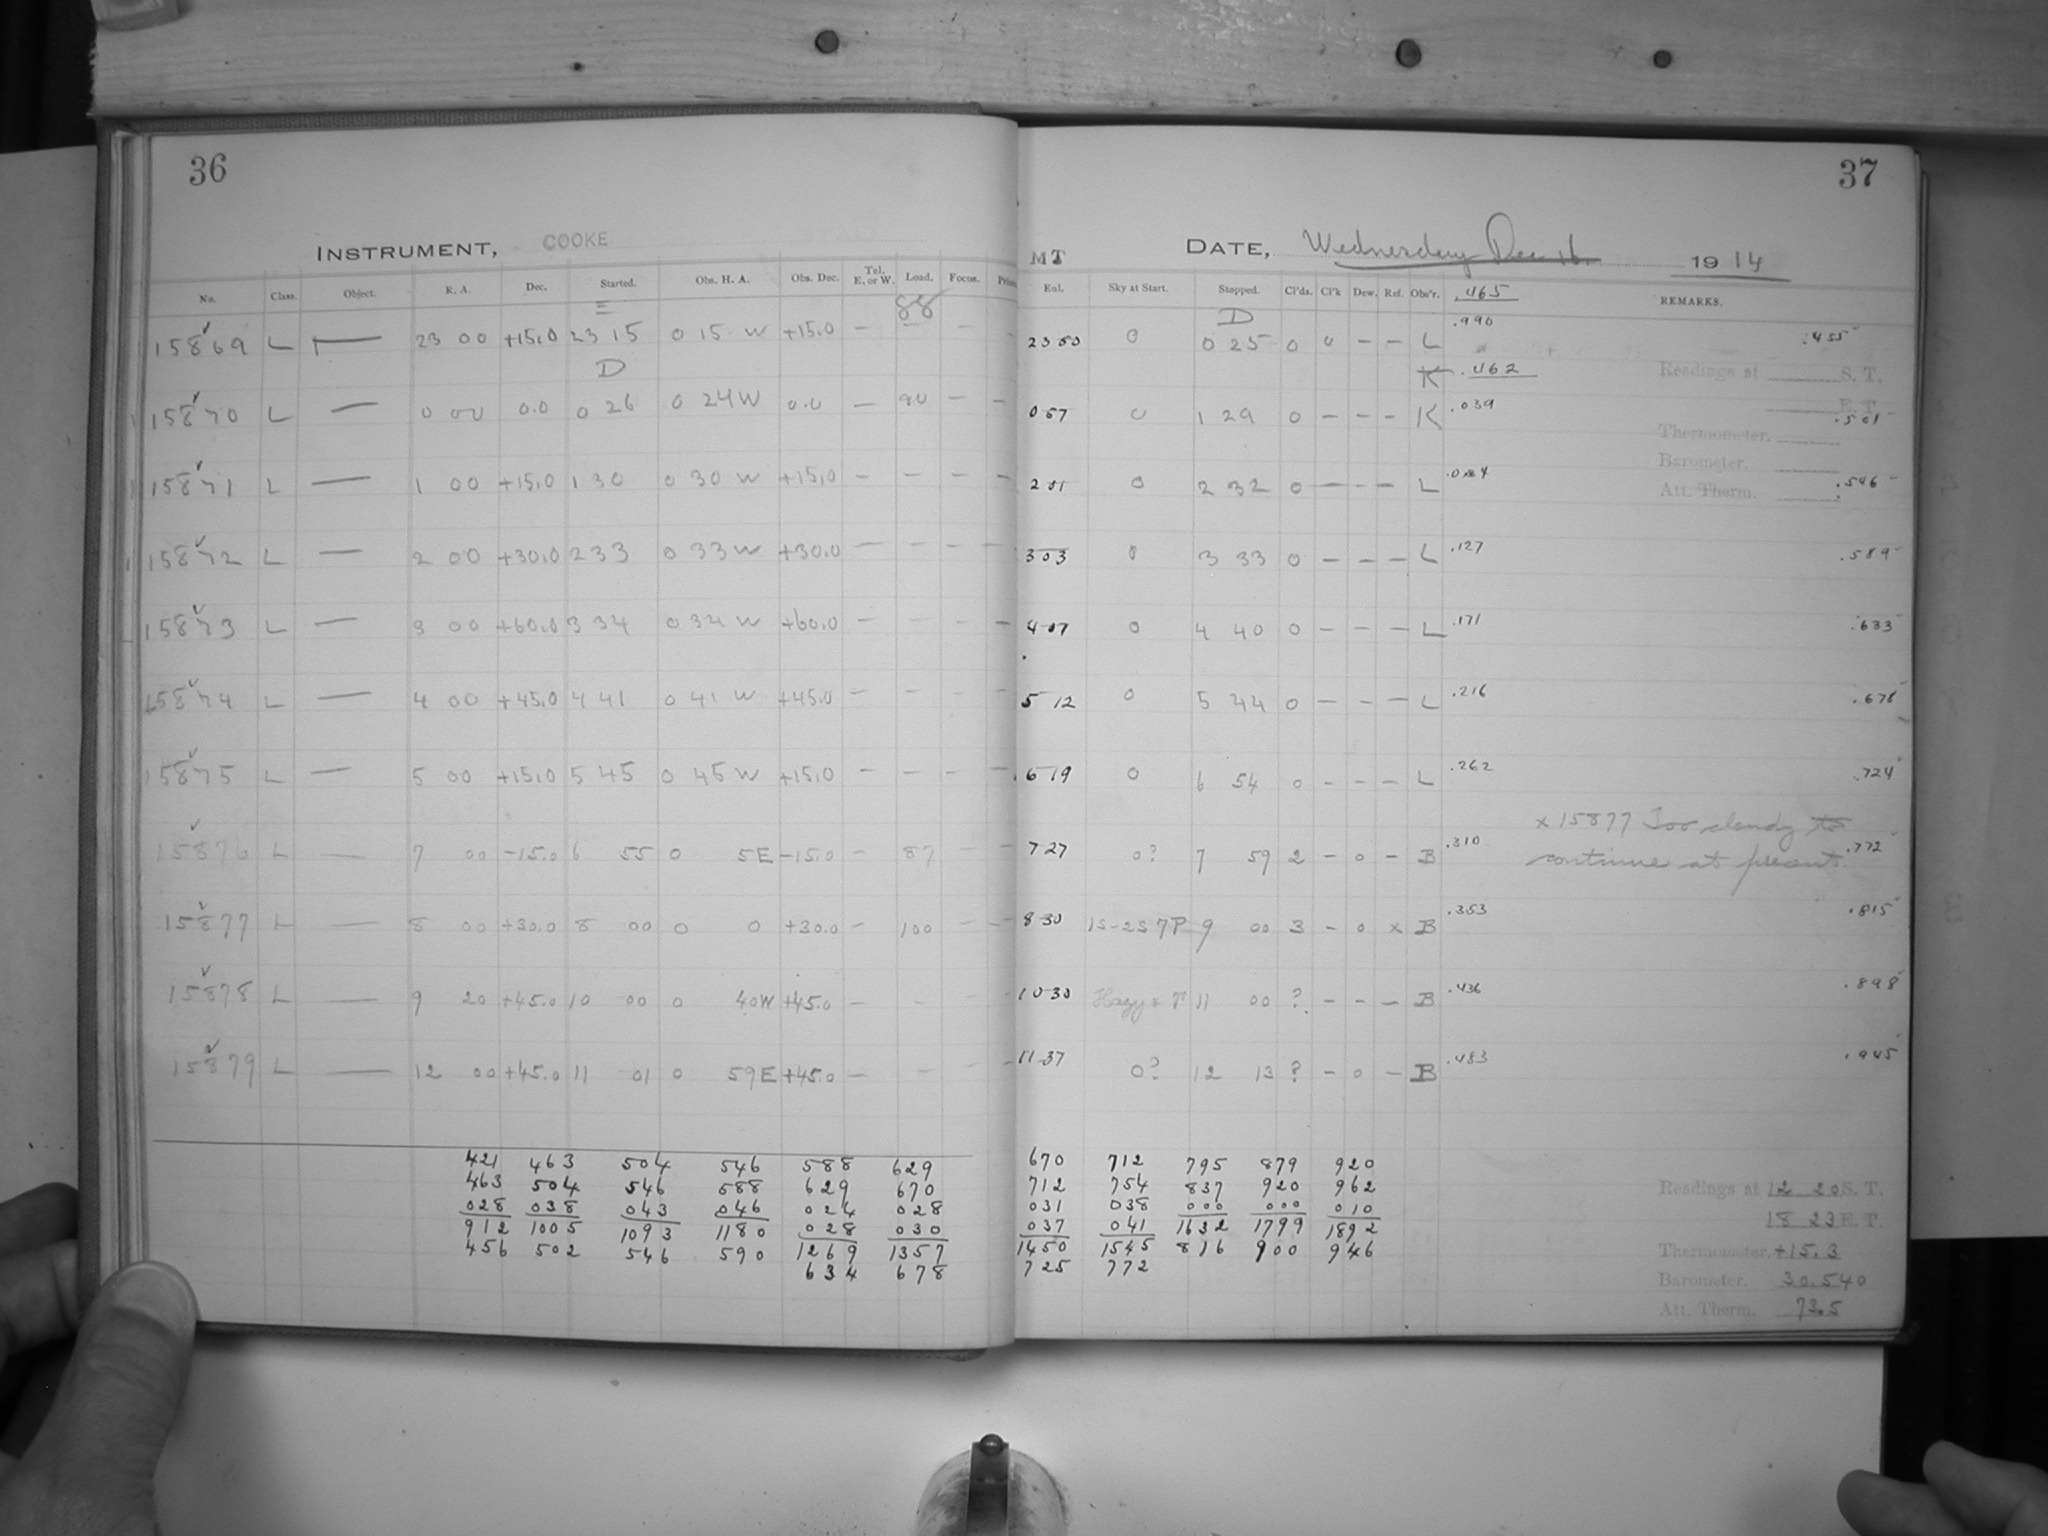 36
INSTRUMENT, COOKE
No. Class. Object. R. A. Dec. Started. Obs. H. A. Obs. Dec. Tel. E. or W. Load. Focus.
E 88
15869 L — 23 00 +15.0 23 15 0 15 W +15.0 — — —
D
15870 L — 0 00 0.0 0 26 0 24 W 0.0 — 90 — —
15871 L — 1 00 +15.0 1 30 0 30 W +15.0 — — — —
15872 L — 2 00 +30.0 2 33 0 33 W +30.0 — — — —
15873 L — 3 00 +60.0 3 34 0 34 W +60.0 — — — —
15874 L — 4 00 +45.0 4 41 0 41 W +45.0 — — — —
15875 L — 5 00 +15.0 5 45 0 45 W +15.0 — — — —
15876 L — 7 00 -15.0 6 55 0 5 E -15.0 — 87 — —
15877 L — 8 00 +30.0 8 00 0 0 +30.0 — 100 — —
15878 L — 9 20 +45.0 10 00 0 40 W +45.0 — — — —
15879 L — 12 00 +45.0 11 01 0 59 E +45.0 — — — —
421 463 504 546 588 629
463 504 546 588 629 670
028 038 043 046 024 028
912 1005 1093 1180 028 030
456 502 546 590 1269 1357
634 678
37
MT DATE, Wednesday Dec 16. 1914
Eul. Sky at Start. Stopped. Cl'ds. Cl'k Dew. Ref. Obs'r. .465 REMARKS.
D
23 50 0 0 25 0 0 — — L .990 .455
K .462 Readings at S. T.
E. T.
0 57 0 1 29 0 — — — K .039 .501
Thermometer.
Barometer.
2 01 0 2 32 0 — — — L .084 .546
Att. Therm.
3 03 0 3 33 0 — — — L .127 .589
4 07 0 4 40 0 — — — L .171 .633
5 12 0 5 44 0 — — — L .216 .678
6 19 0 6 54 0 — — — L .262 .724
x 15877 Too cloudy to
continue at present.
7 27 0? 7 59 2 — 0 — B .310 .772
8 30 1S-2S 7P 9 00 3 — 0 x B .353 .815
10 30 Hazy 11 00 ? — — — B .436 .898
11 37 0? 12 13 ? — 0 — B .483 .945
670 712 795 879 920
712 754 837 920 962
031 038 000 000 010
037 041 1632 1799 1892
1450 1545 816 900 946
725 772
Readings at 12 20 S. T.
18 23 E. T.
Thermometer. +15.3
Barometer. 30.540
Att. Therm. 73.5